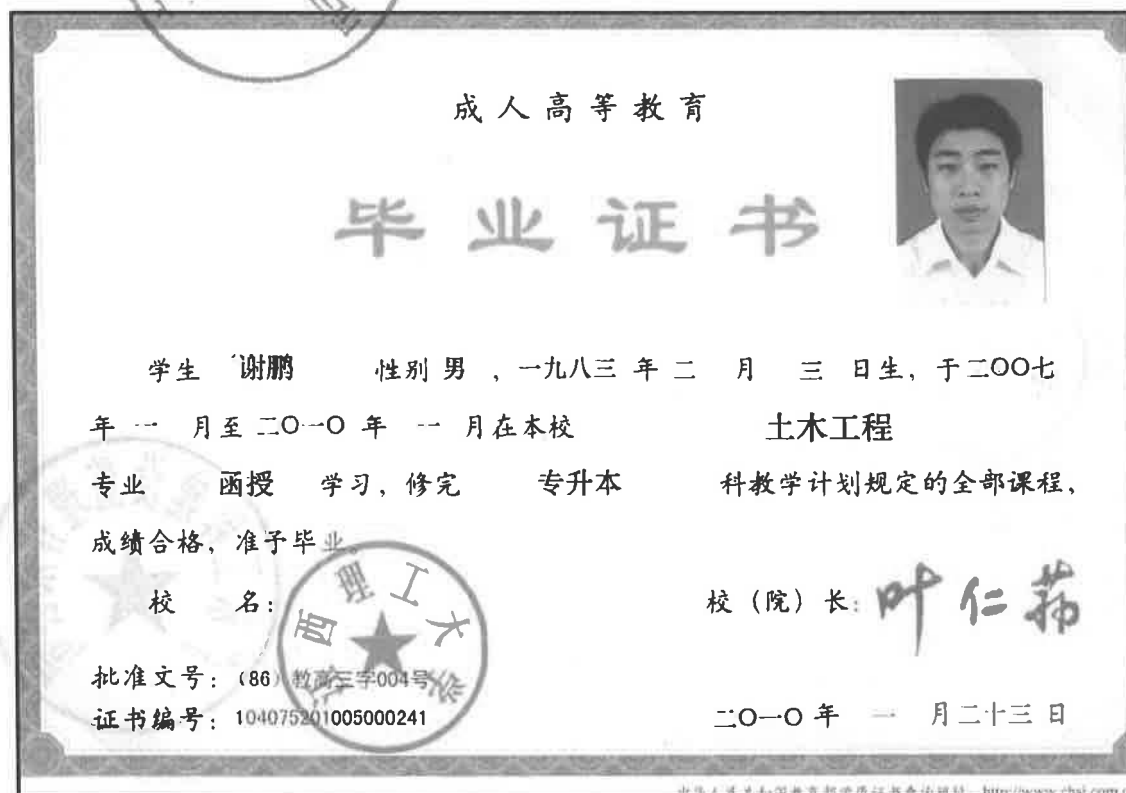 成人高等教育
毕业证书
学生 谢鹏 性别 男 ，一九八三 年 二 月 三 日生，于二〇〇七
年 一 月至 二〇一〇 年 一 月在本校 土木工程
专业 函授 学习，修完 专升本 科教学计划规定的全部课程，
成绩合格，准予毕业。
校 名： 江西理工大学
校（院）长：叶仁荪
批准文号：(86) 教高三字004号
证书编号：104075201005000241
二〇一〇 年 一 月二十三 日